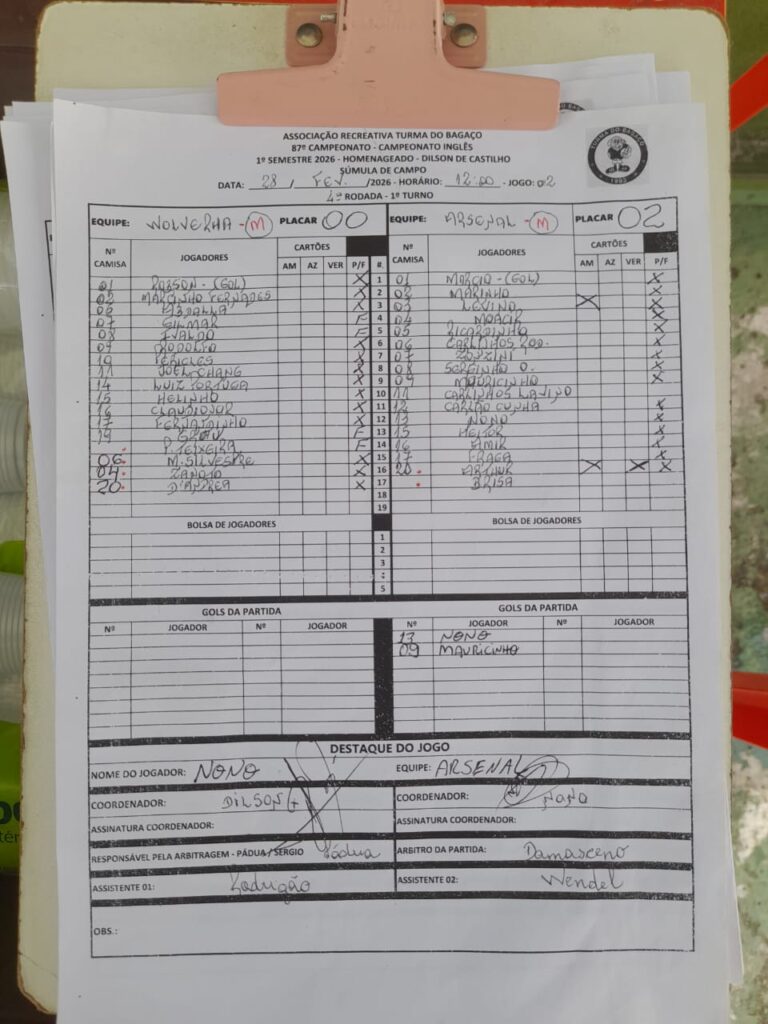 ASSOCIAÇÃO RECREATIVA TURMA DO BAGAÇO
87º CAMPEONATO - CAMPEONATO INGLÊS
1º SEMESTRE 2026 - HOMENAGEADO - DILSON DE CASTILHO
SÚMULA DE CAMPO
DATA: 28 / FEV. /2026 - HORÁRIO: 12:00 - JOGO: 02
4ª RODADA - 1º TURNO
TURMA DO BAGAÇO
EQUIPE: WOLVERHA - M PLACAR 00 EQUIPE: ARSENAL - M PLACAR 02
Nº CAMISA JOGADORES CARTÕES AM AZ VER P/F #. Nº CAMISA JOGADORES CARTÕES AM AZ VER P/F
01 ROBSON - (GOL) X 1 01 MARCIO - (GOL) X
02 MARCINHO FERNADES X 2 02 MARINHO X
06 ABDALLA X 3 03 LEVINO X X
07 GILMAR F 4 04 MOACIR X
08 IVALDO F 5 05 RICARDINHO X
09 RODOLFO X 6 06 CARLINHOS ROD. X
10 PÉRICLES X 7 07 ZONZINI X
11 JOEL CHANG X 8 08 SERGINHO O. X
14 LUIZ PORTUGA X 9 09 MAURICINHO X
15 HELINHO X 10 11 CARLINHOS LAVINO
16 CLAUDIONOR X 11 12 CARLÃO CUNHA X
17 FERNANDINHO X 12 13 NONO X
19 F 13 15 HEITOR X
P. TEIXEIRA F 14 16 AMIR X
06. M. SILVESTRE X 15 17 FRAGA X
04. ZANGIO X 16 20. ARTHUR X X X
20. D'ANDREA X 17 . BRISA
18
19
BOLSA DE JOGADORES BOLSA DE JOGADORES
1
2
3
:
5
GOLS DA PARTIDA GOLS DA PARTIDA
Nº JOGADOR Nº JOGADOR Nº JOGADOR Nº JOGADOR
13 NONO
09 MAURICINHO
DESTAQUE DO JOGO
NOME DO JOGADOR: NONO EQUIPE: ARSENAL
COORDENADOR: DILSON G COORDENADOR: NONO
ASSINATURA COORDENADOR: ASSINATURA COORDENADOR:
RESPONSÁVEL PELA ARBITRAGEM - PÁDUA / SERGIO Pádua ARBITRO DA PARTIDA: Damasceno
ASSISTENTE 01: Zadugão ASSISTENTE 02: Wendel
OBS.: